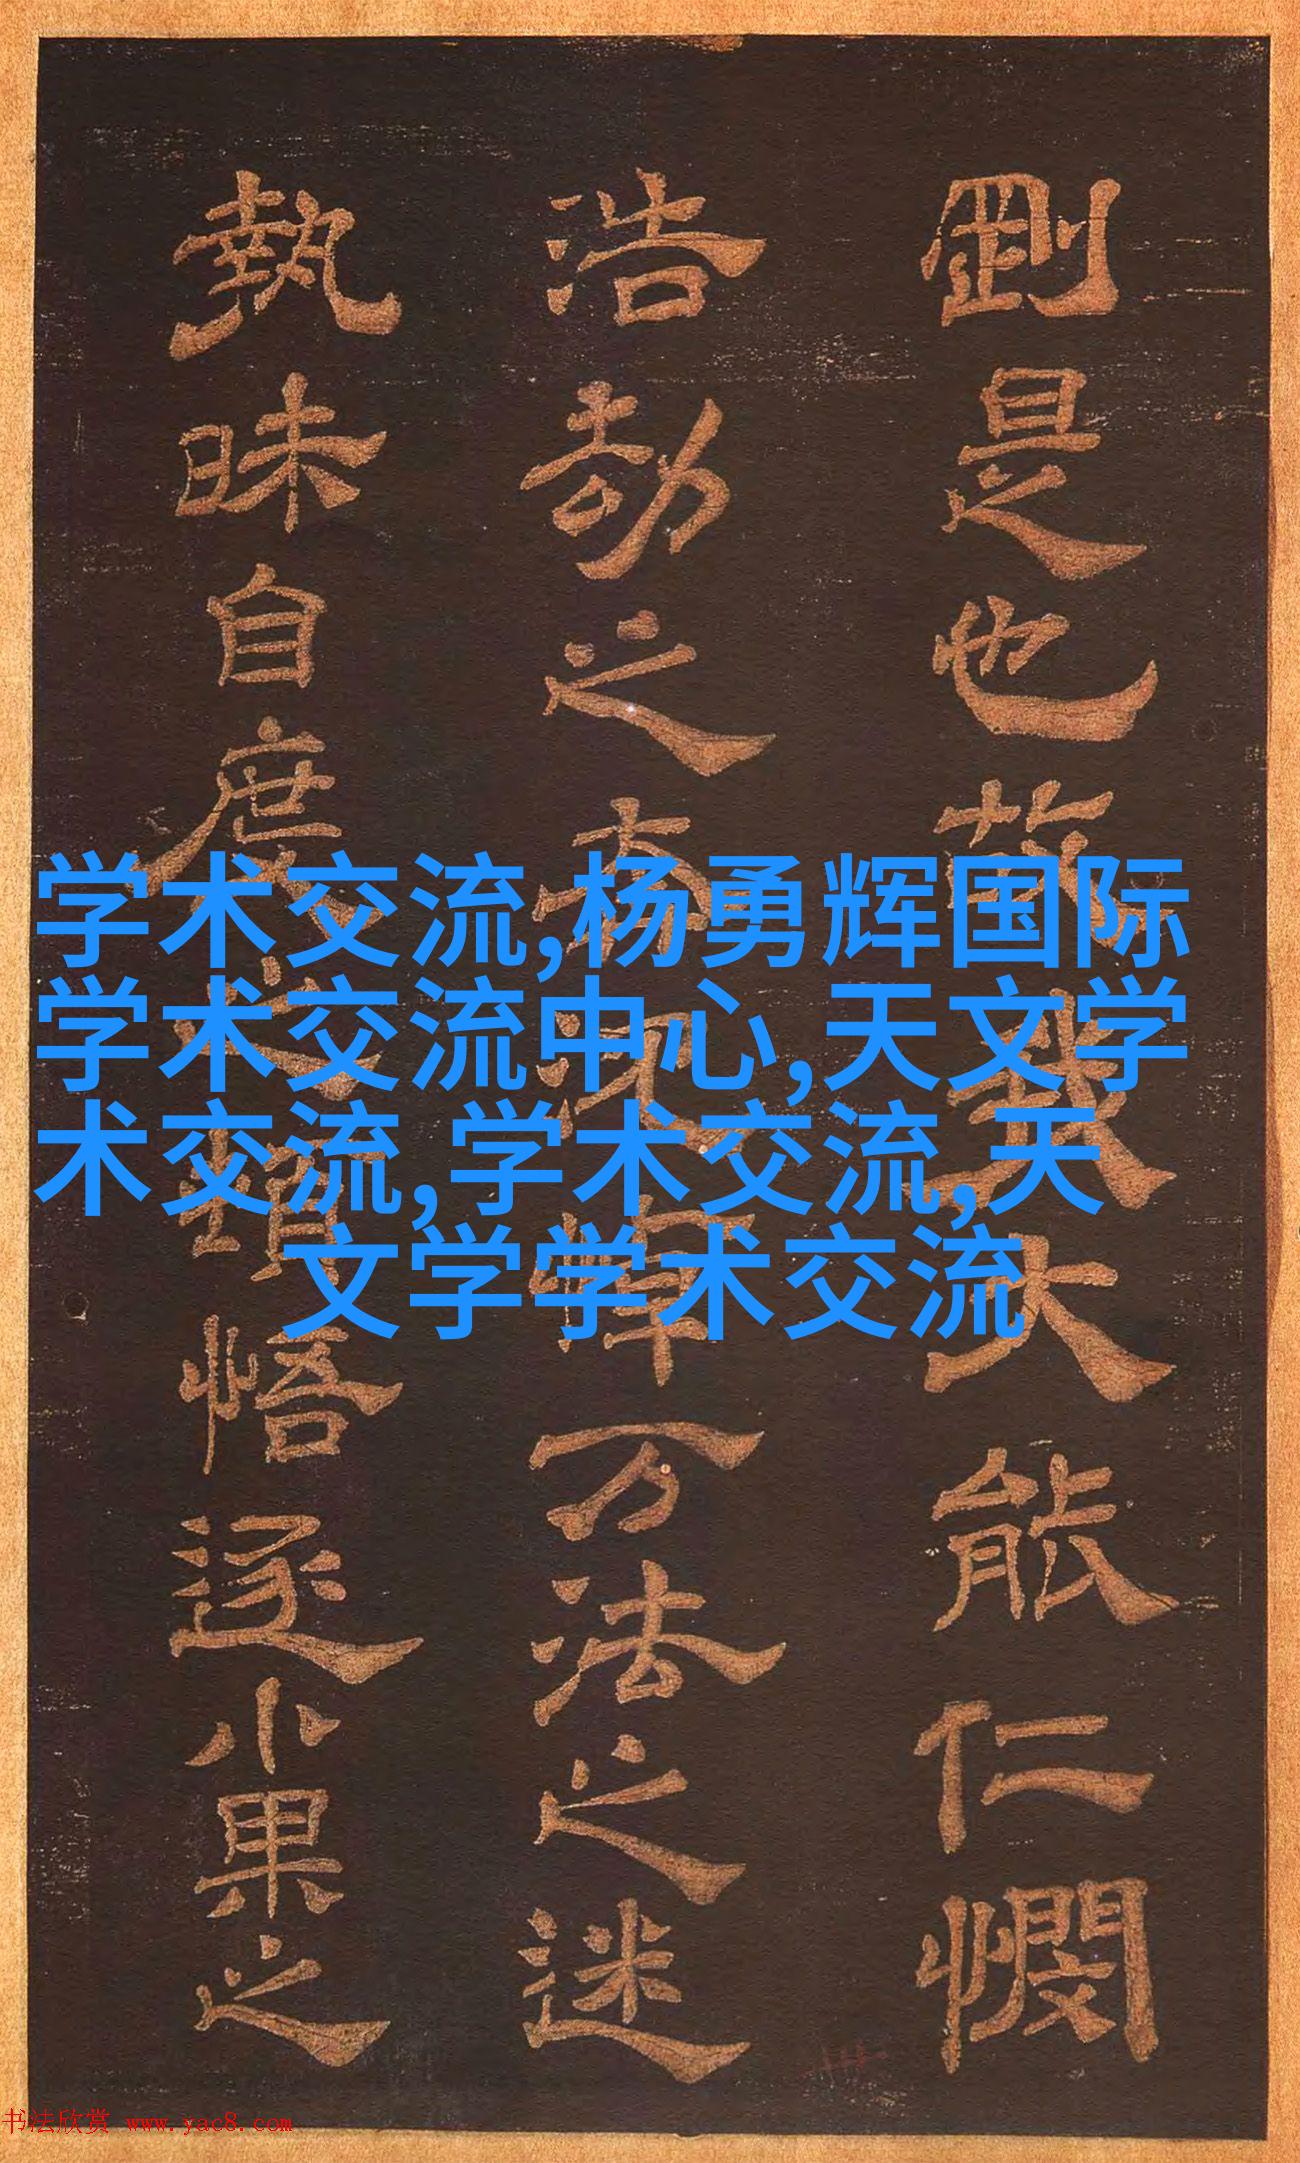 剛是也故我大能仁憫
浩劫之
万法之迷
執昧自度之
悟逐小果之
学术交流,杨勇辉国际
学术交流中心,天文学
术交流,学术交流,天
文学学术交流
书法欣赏 www.yac8.com